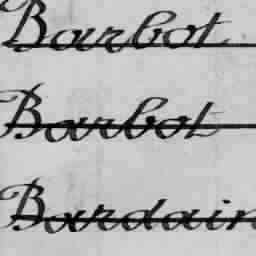 Barbot
Barbot
Bardain